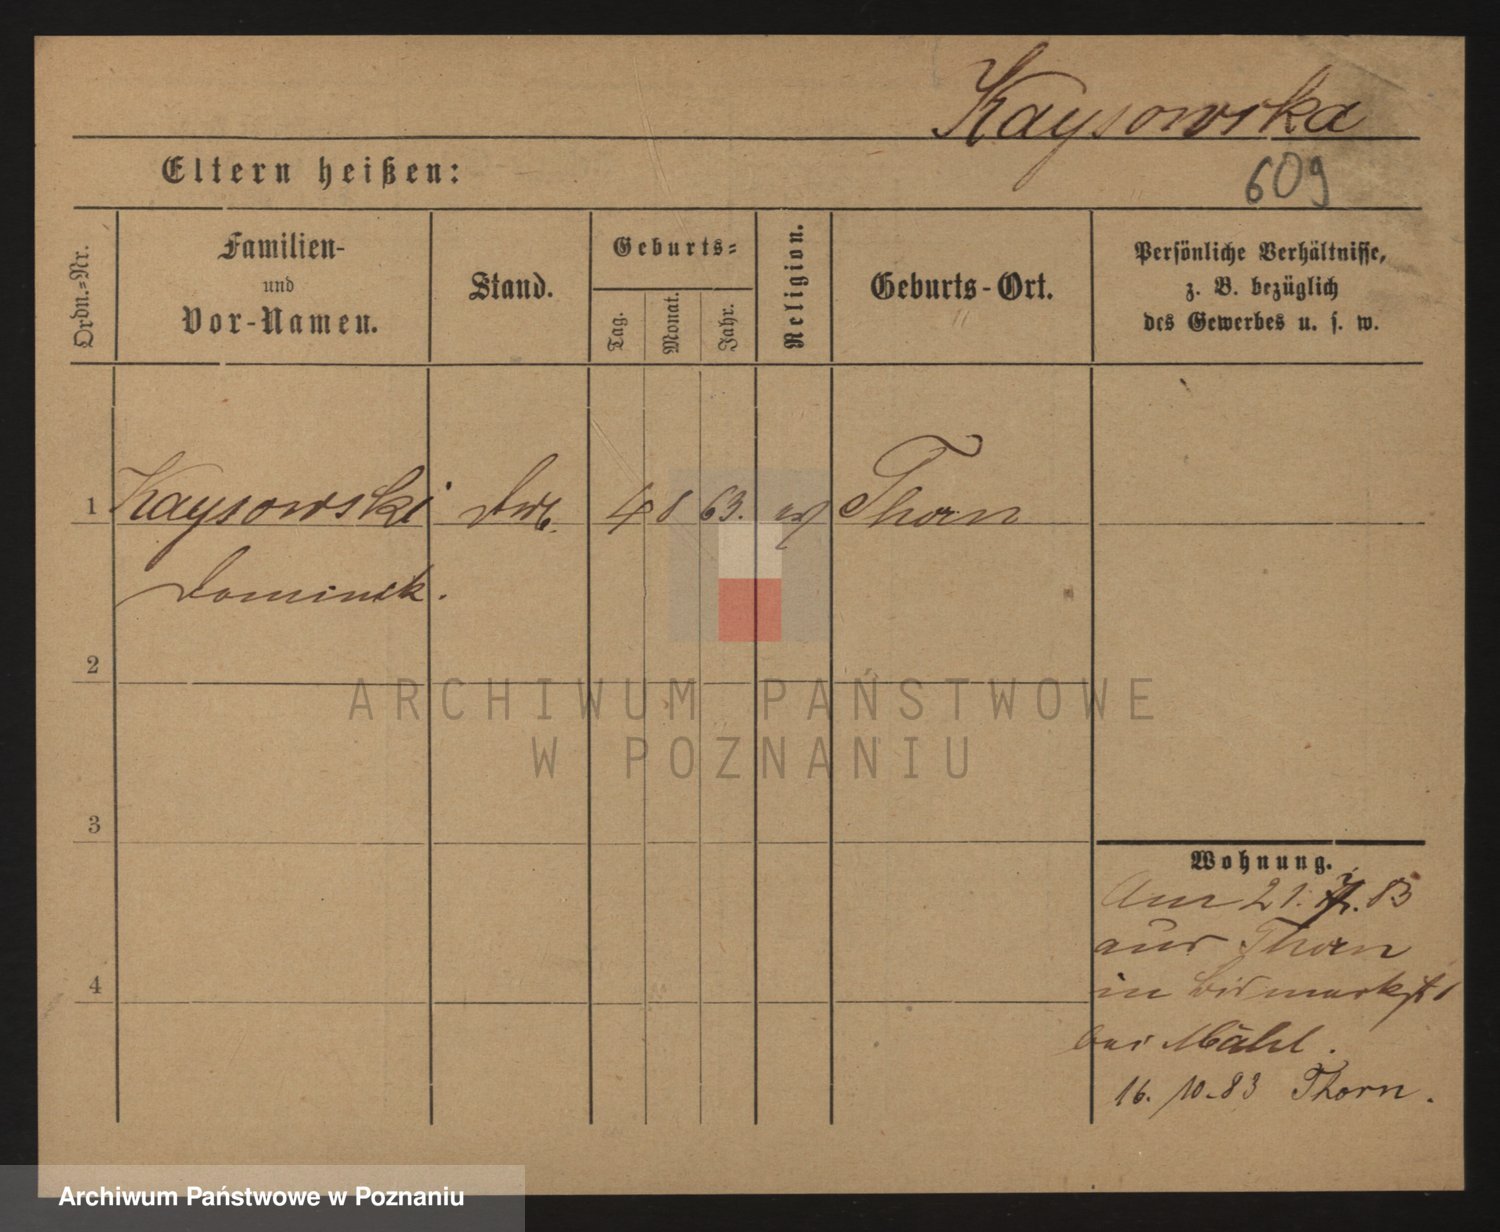 Kaysowska
Eltern heißen:
609
Ordn.=Nr.
Familien-
und
Vor-Namen.
Stand.
Geburts=
Tag.
Monat.
Jahr.
Religion.
Geburts-Ort.
Persönliche Verhältnisse,
z. B. bezüglich
des Gewerbes u. s. w.
1 Kaysowski 4 8 63. Thorn
Dominik.
2
3
4
Wohnung.
Am 21. 83
aus Thorn
in Bismarckst 1
bei Mähl.
16. 10. 83 Thorn.
ARCHIWUM PAŃSTWOWE
W POZNANIU
Archiwum Państwowe w Poznaniu